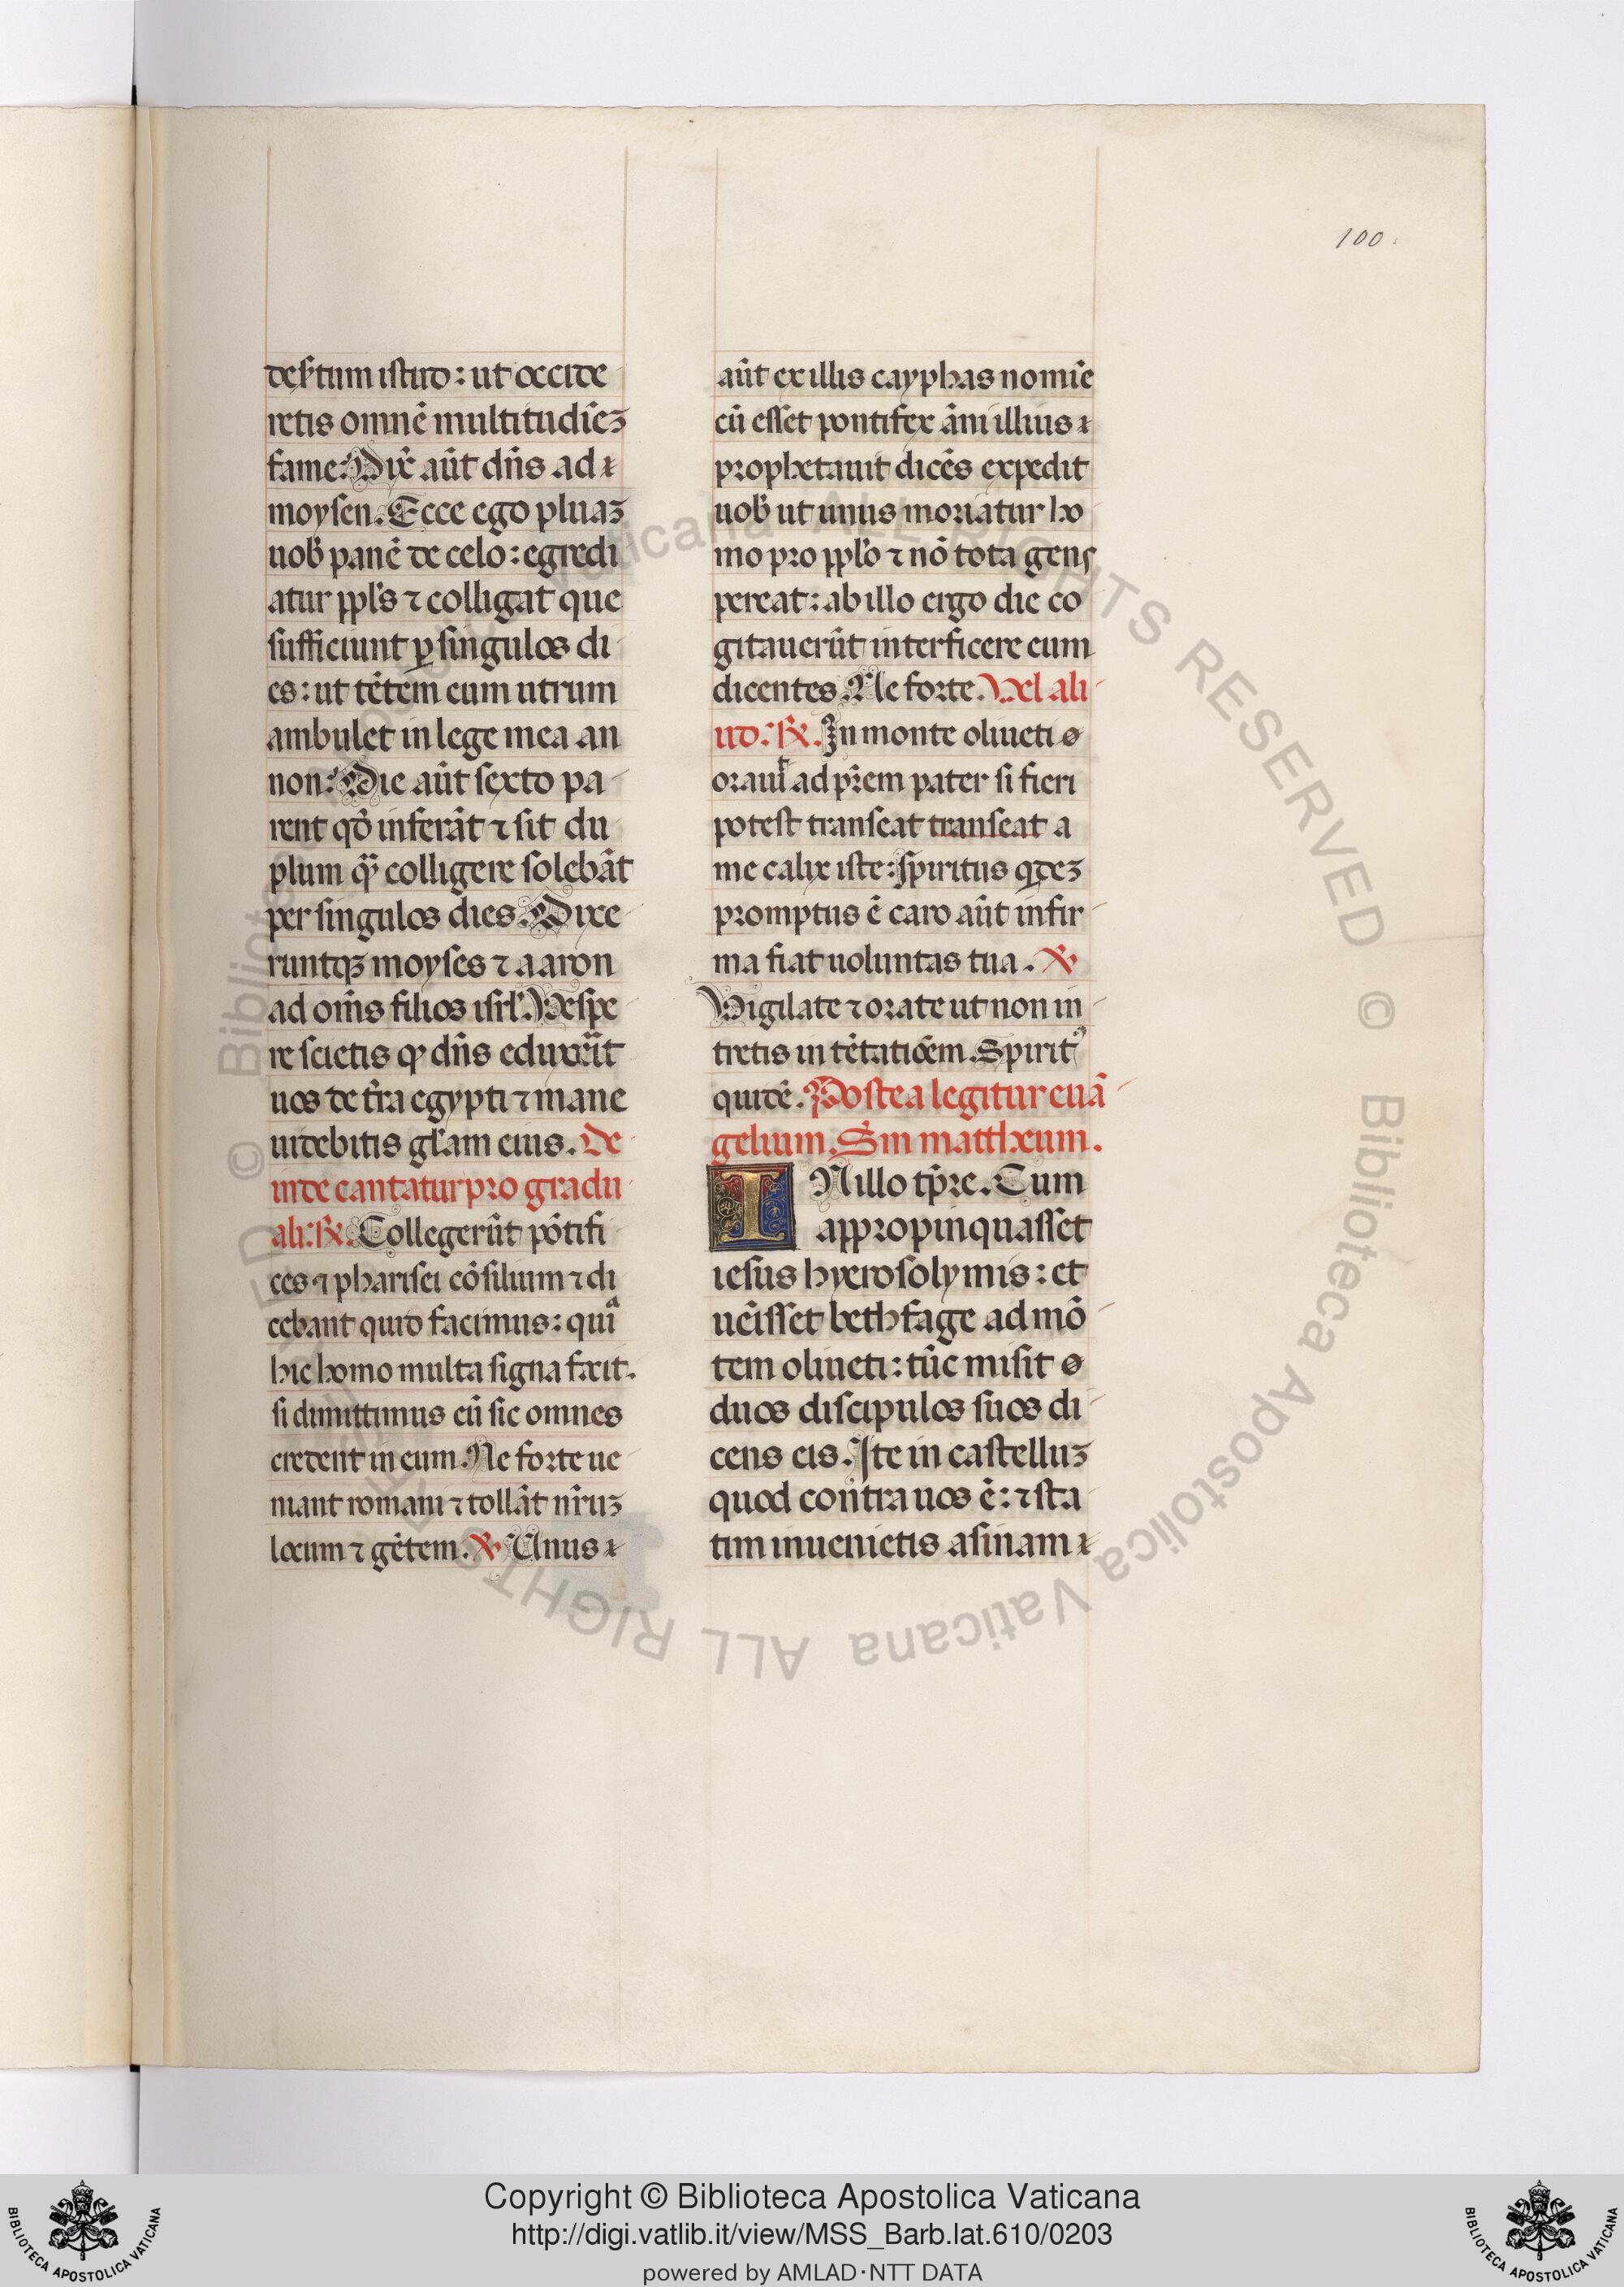 100.
des̃tum istud: ut occide
retis omnẽ multitudĩeꝫ
fame. Dix̃ aũt dñs ad
moysen. Ecce ego pluaꝫ
uob̃ panẽ de celo: egredi
atur ppl̃s ⁊ colligat que
sufficiunt ꝑ singulos di
es: ut tẽtem eum utrum
ambulet in lege mea an
non. Die aũt sexto pa
rent qđ inferãt ⁊ sit du
plum qᷓ colligere solebãt
per singulos dies. Dixe
runtqꝫ moyses ⁊ aaron
ad om̃s filios isrl̃. Vespe
re scietis ꝙ dñs eduxẽit
uos de t̃ra egypti ⁊ mane
uidebitis gl̃am eius. De
inde cantatur pro gradu
ali. ℟. Collegerũt põtifi
ces ⁊ pharisei cõsilium ⁊ di
cebant quid facimus: quiᷓ
hic homo multa signa facit.
si dimittimus eũ sic omnes
credent in eum. Ne forte ue
niant romani ⁊ tollãt nr̃uꝫ
locum ⁊ gẽtem. ℣ Unus
aũt ex illis cayphas nomĩe
cũ esset pontifex ãni illius
prophetauit dicẽs expedit
uob̃ ut unus moriatur ho
mo pro ppl̃o ⁊ nõ tota gens
pereat: ab illo ergo die co
gitauerũt interficere eum
dicentes. Ne forte. Vel ali
ud. ℟. In monte oliueti
oraui ad pr̃em pater si fieri
potest transeat transeat a
me calix iste: spiritus qdeꝫ
promptus ẽ caro aũt infir
ma fiat uoluntas tua. ℣
Vigilate ⁊ orate ut non in
tretis in tẽtatiõem. Spirit᾽
quidẽ. Postea legitur euã
gelium. Sm mattheum.
IN illo tp̃re. Cum
appropinquasset
iesus hyerosolymis: et
uẽisset bethfage ad mõ
tem oliueti: tũc misit
duos discipulos suos di
cens eis. Ite in castelluꝫ
quod contra uos ẽ: ⁊ sta
tim inuenietis asinam
Copyright © Biblioteca Apostolica Vaticana
http://digi.vatlib.it/view/MSS_Barb.lat.610/0203
powered by AMLAD·NTT DATA
BIBLIOTECA APOSTOLICA VATICANA
BIBLIOTECA APOSTOLICA VATICANA
© Biblioteca Apostolica Vaticana ALL RIGHTS RESERVED © Biblioteca Apostolica Vaticana ALL RIGHTS RESERVED